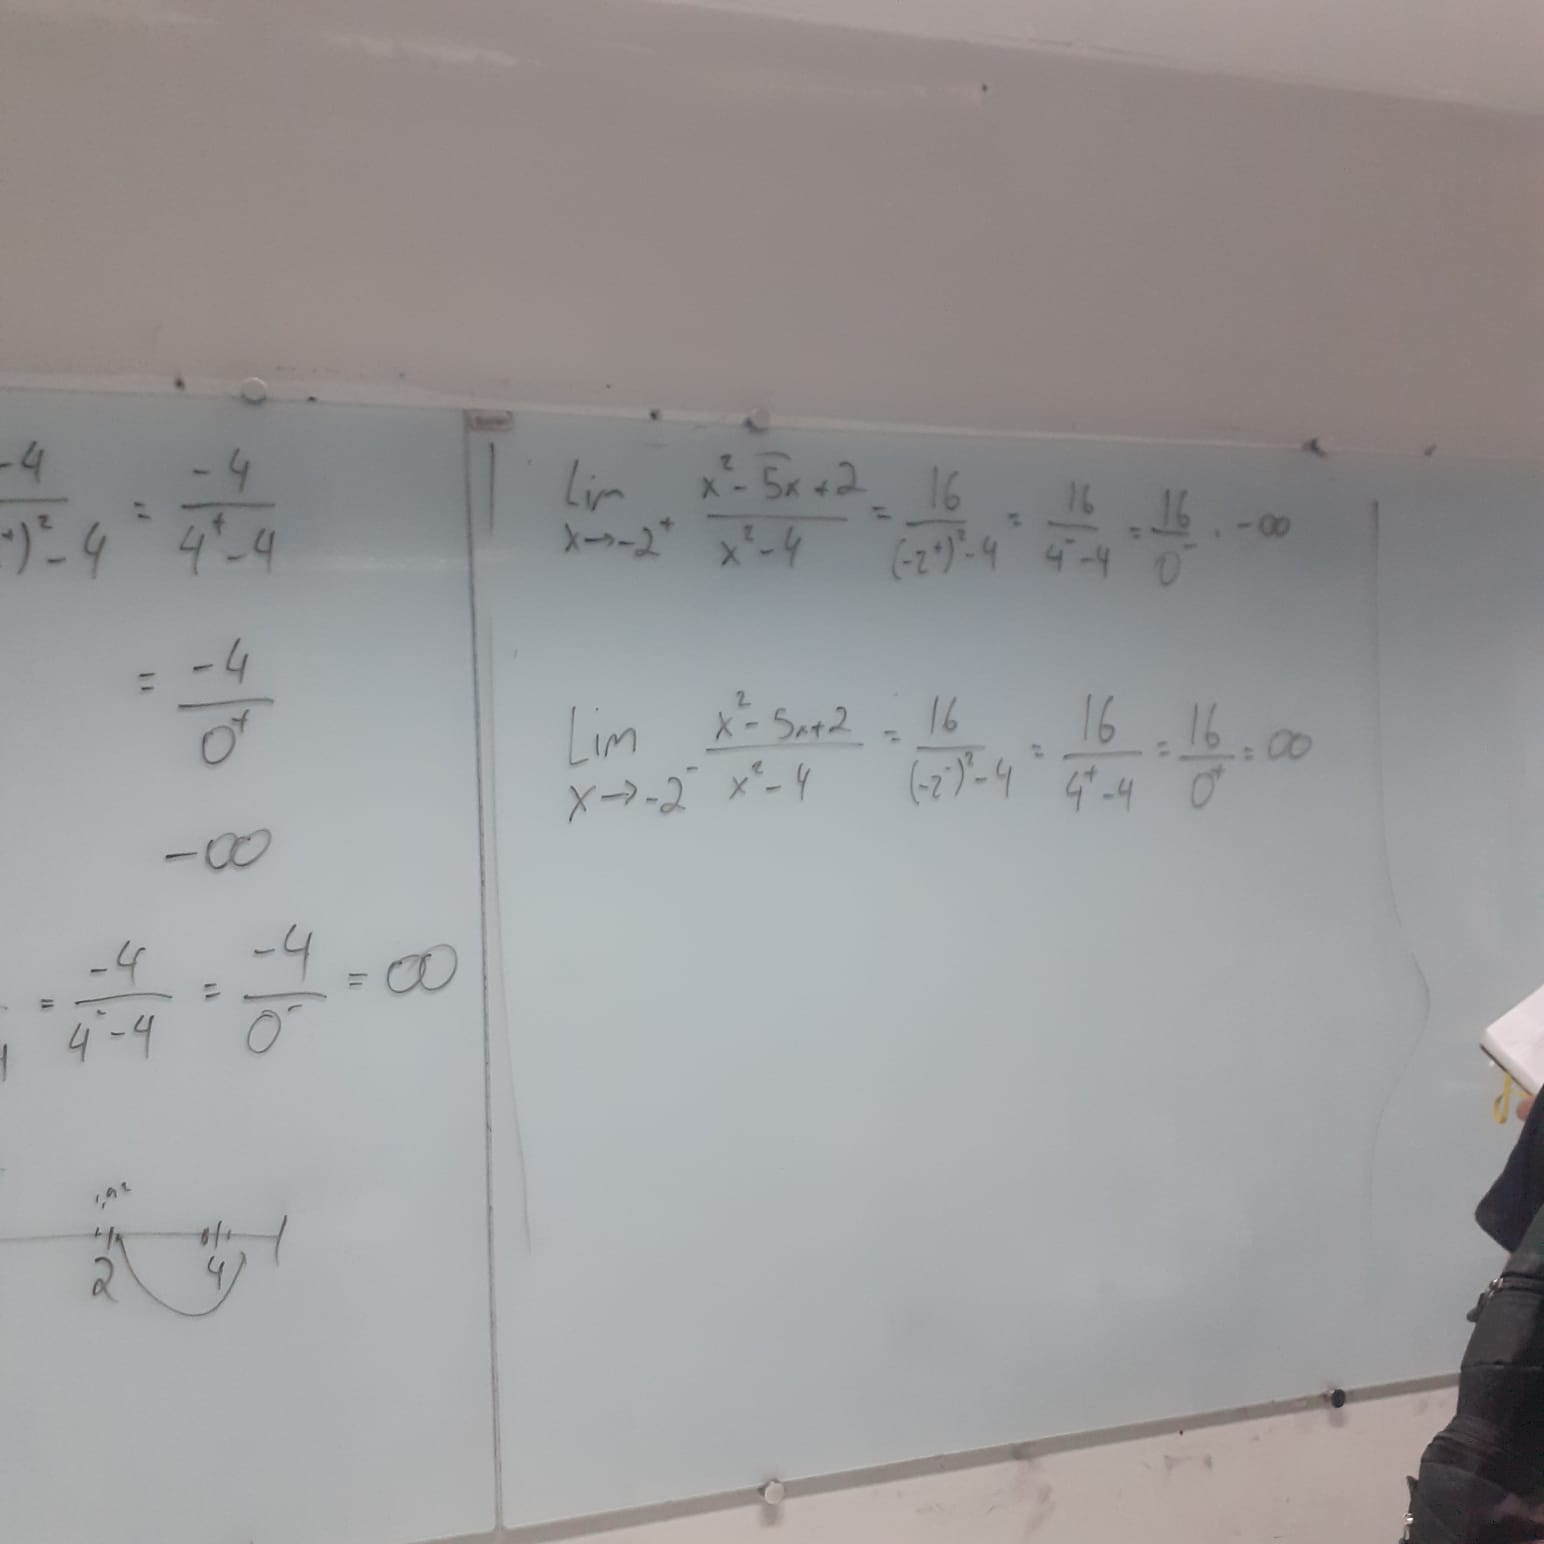 -4/(⁺)²-4 = -4/4⁺-4
= -4/0⁺
-∞
= -4/4⁻-4 = -4/0⁻ = ∞
2 4
Lim x→-2⁺ x²-5x+2/x²-4 = 16/(-2⁺)²-4 = 16/4⁻-4 = 16/0⁻ . -∞
Lim x→-2⁻ x²-5x+2/x²-4 = 16/(-2⁻)²-4 = 16/4⁺-4 = 16/0⁺ = ∞